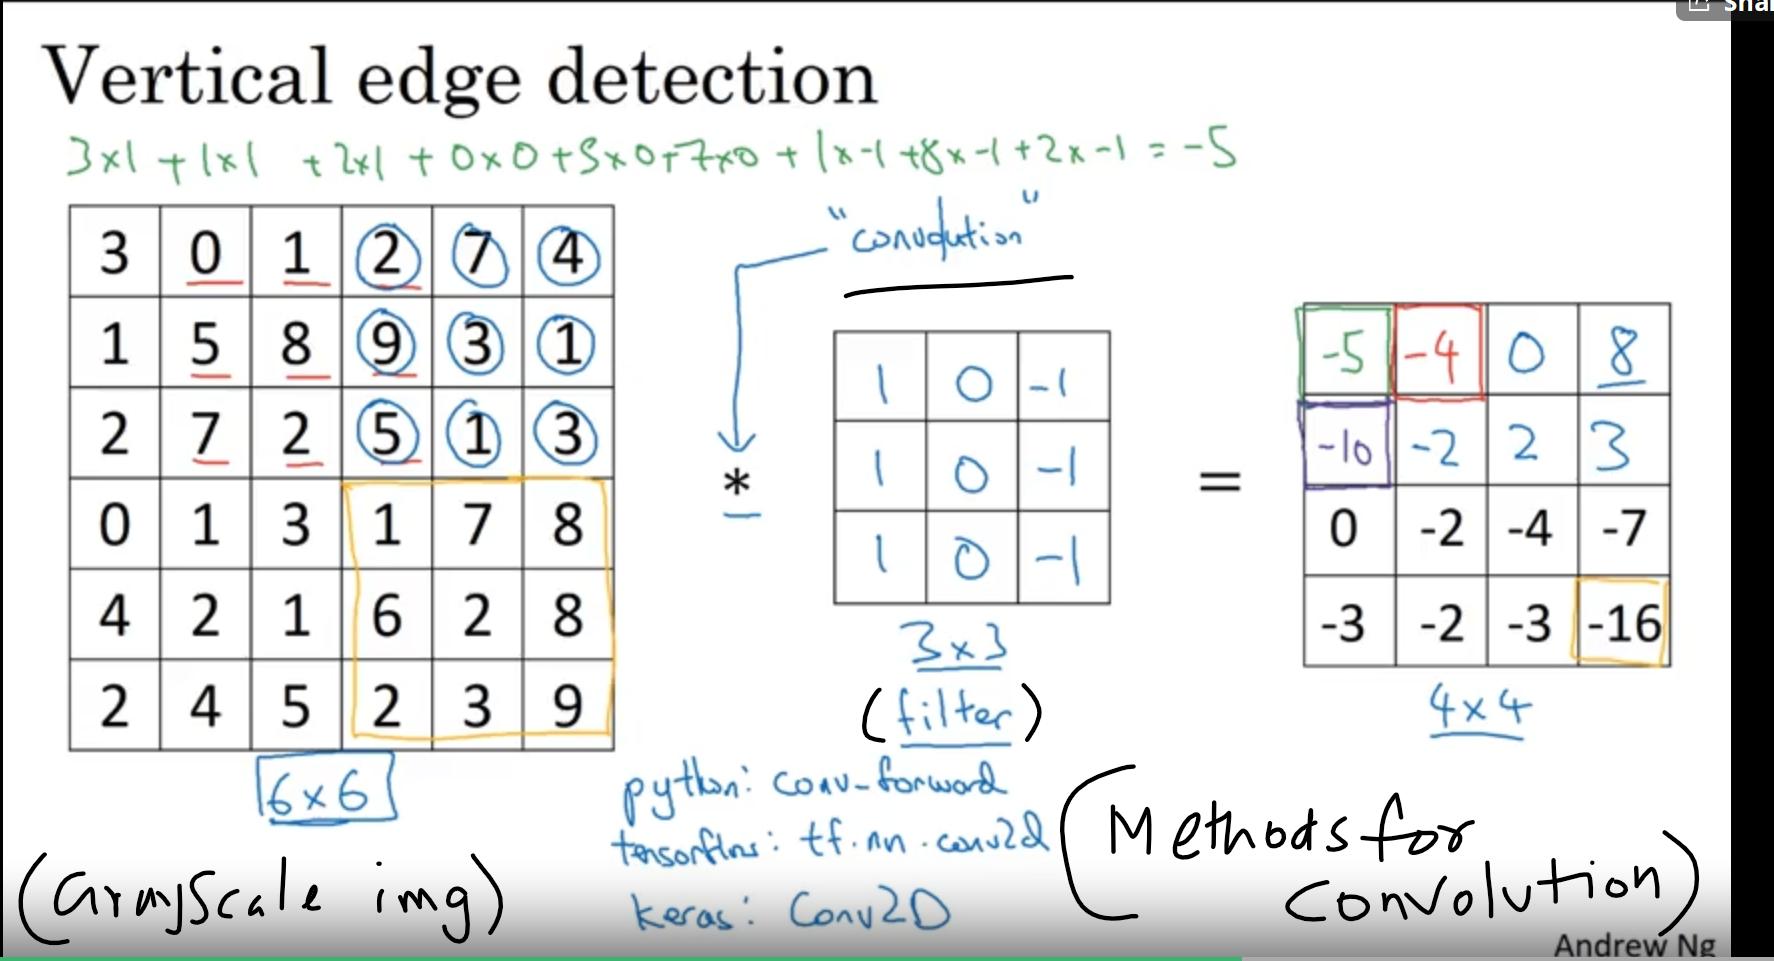 Shar
Vertical edge detection
3x1 + 1x1 + 2x1 + 0x0 + 5x0 + 7x0 + 1x-1 + 8x-1 + 2x-1 = -5
"convolution"
3 0 1 2 7 4
1 5 8 9 3 1
2 7 2 5 1 3
0 1 3 1 7 8
4 2 1 6 2 8
2 4 5 2 3 9
6x6
(Grayscale img)
*
1 0 -1
1 0 -1
1 0 -1
3x3
(filter)
=
-5 -4 0 8
-10 -2 2 3
0 -2 -4 -7
-3 -2 -3 -16
4x4
python: conv-forward
tensorflow: tf.nn.conv2d
keras: Conv2D
(Methods for
convolution)
Andrew Ng